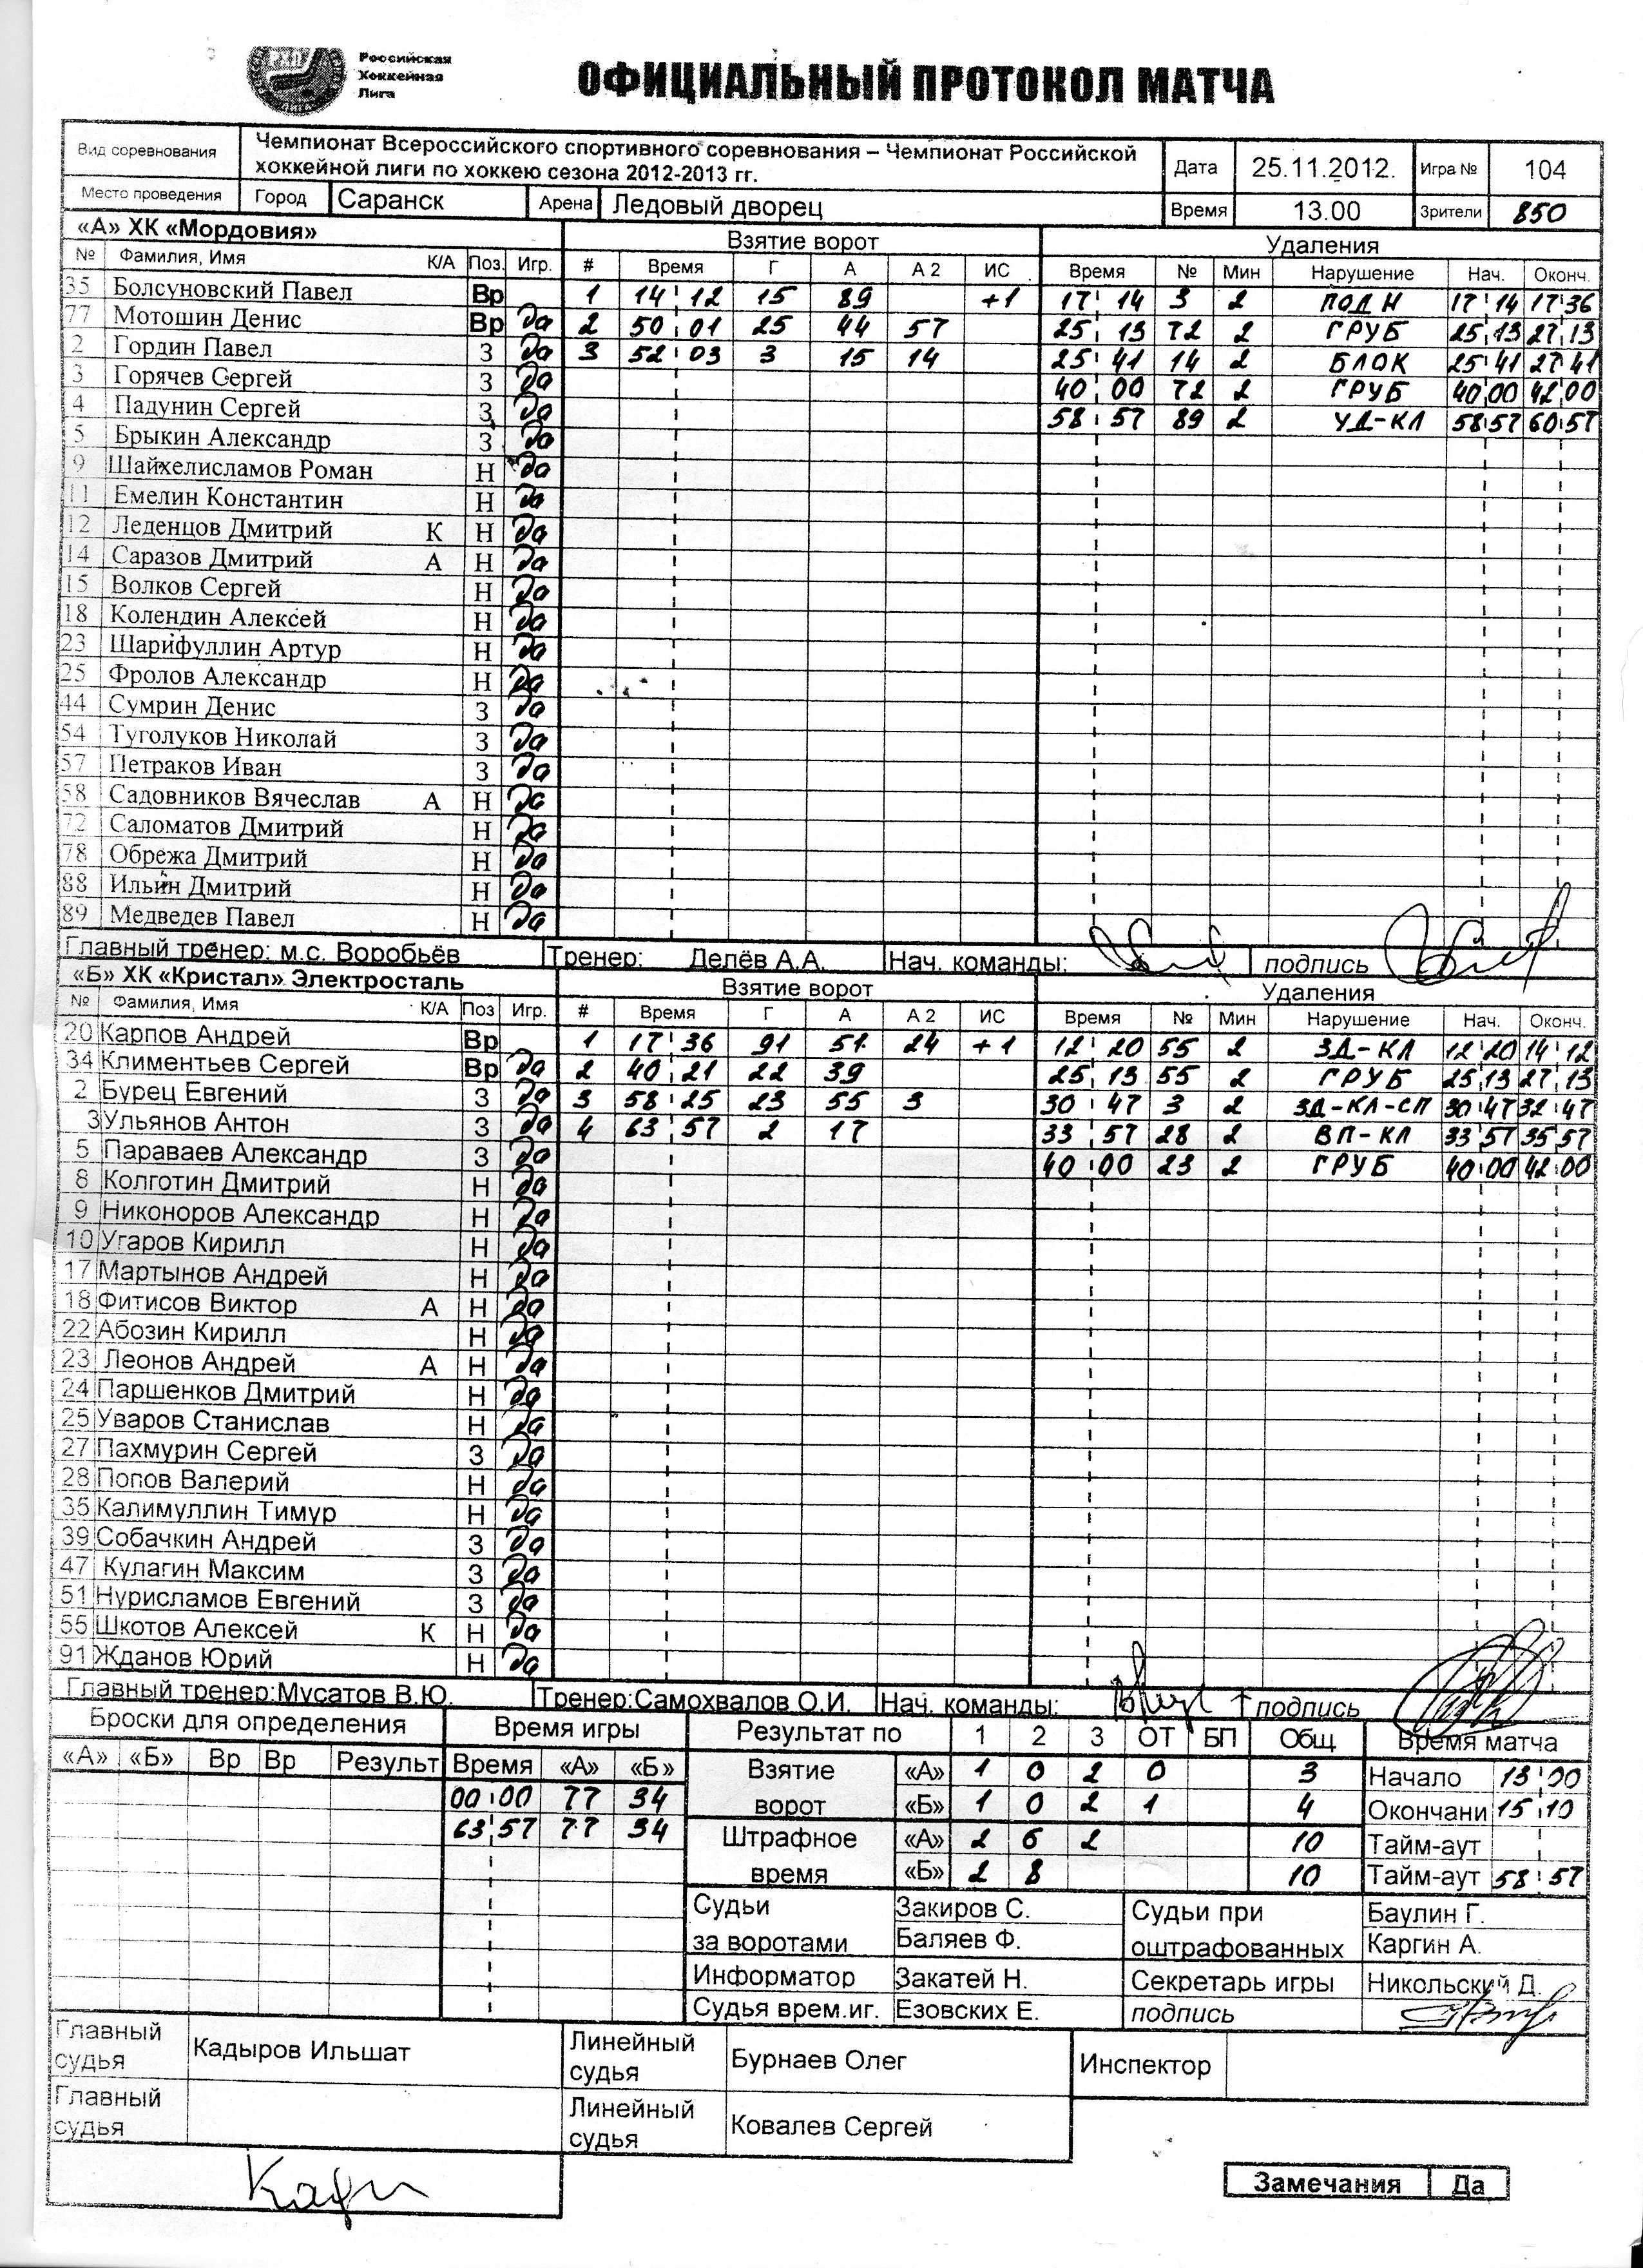 РХЛ Российская
Хоккейная
Лига
ОФИЦИАЛЬНЫЙ ПРОТОКОЛ МАТЧА
Вид соревнования Чемпионат Всероссийского спортивного соревнования – Чемпионат Российской хоккейной лиги по хоккею сезона 2012-2013 гг. Дата 25.11.2012. Игра № 104
Место проведения Город Саранск Арена Ледовый дворец Время 13.00 Зрители 850
«А» ХК «Мордовия» Взятие ворот Удаления
№ Фамилия, Имя К/А Поз. Игр. # Время Г А А 2 ИС Время № Мин Нарушение Нач. Оконч.
35 Болсуновский Павел Вр 1 14 12 15 89 +1 17 14 3 2 ПОД Н 17 14 17 36
77 Мотошин Денис Вр да 2 50 01 25 44 57 25 13 72 2 ГРУБ 25 13 27 13
2 Гордин Павел З да 3 52 03 3 15 14 25 41 14 2 БЛОК 25 41 27 41
3 Горячев Сергей З да 40 00 72 2 ГРУБ 40 00 42 00
4 Падунин Сергей З да 58 57 89 2 УД-КЛ 58 57 60 57
5 Брыкин Александр З да
9 Шайхелисламов Роман Н да
11 Емелин Константин Н да
12 Леденцов Дмитрий К Н да
14 Саразов Дмитрий А Н да
15 Волков Сергей Н да
18 Колендин Алексей Н да
23 Шарифуллин Артур Н да
25 Фролов Александр Н да
44 Сумрин Денис З да
54 Туголуков Николай З да
57 Петраков Иван З да
58 Садовников Вячеслав А Н да
72 Саломатов Дмитрий Н да
78 Обрежа Дмитрий Н да
88 Ильин Дмитрий Н да
89 Медведев Павел Н да
Главный тренер: м.с. Воробьёв Тренер: Делёв А.А. Нач. команды: подпись
«Б» ХК «Кристал» Электросталь Взятие ворот Удаления
№ Фамилия, Имя К/А Поз Игр. # Время Г А А 2 ИС Время № Мин Нарушение Нач. Оконч.
20 Карпов Андрей Вр 1 17 36 91 51 24 +1 12 20 55 2 ЗД-КЛ 12 20 14 12
34 Климентьев Сергей Вр да 2 40 21 22 39 25 13 55 2 ГРУБ 25 13 27 13
2 Бурец Евгений З да 3 58 25 23 55 3 30 47 3 2 ЗД-КЛ-СП 30 47 32 47
3 Ульянов Антон З да 4 63 57 2 17 33 57 28 2 ВП-КЛ 33 57 35 57
5 Параваев Александр З да 40 00 23 2 ГРУБ 40 00 42 00
8 Колготин Дмитрий Н да
9 Никоноров Александр Н да
10 Угаров Кирилл Н да
17 Мартынов Андрей Н да
18 Фитисов Виктор А Н да
22 Абозин Кирилл Н да
23 Леонов Андрей А Н да
24 Паршенков Дмитрий Н да
25 Уваров Станислав Н да
27 Пахмурин Сергей З да
28 Попов Валерий Н да
35 Калимуллин Тимур Н да
39 Собачкин Андрей З да
47 Кулагин Максим З да
51 Нурисламов Евгений З да
55 Шкотов Алексей К Н да
91 Жданов Юрий Н да
Главный тренер:Мусатов В.Ю. Тренер:Самохвалов О.И. Нач. команды: подпись
Броски для определения Время игры Результат по 1 2 3 ОТ БП Общ Время матча
«А» «Б» Вр Вр Результ Время «А» «Б» Взятие «А» 1 0 2 0 3 Начало 13 00
00 00 77 34 ворот «Б» 1 0 2 1 4 Окончани 15 10
63 57 77 34 Штрафное «А» 2 6 2 10 Тайм-аут
время «Б» 2 8 10 Тайм-аут 58 57
Судьи Закиров С. Судьи при Баулин Г.
за воротами Баляев Ф. оштрафованных Каргин А.
Информатор Закатей Н. Секретарь игры Никольский Д.
Судья врем.иг. Езовских Е. подпись
Главный судья Кадыров Ильшат Линейный судья Бурнаев Олег Инспектор
Главный судья Линейный судья Ковалев Сергей
Замечания Да